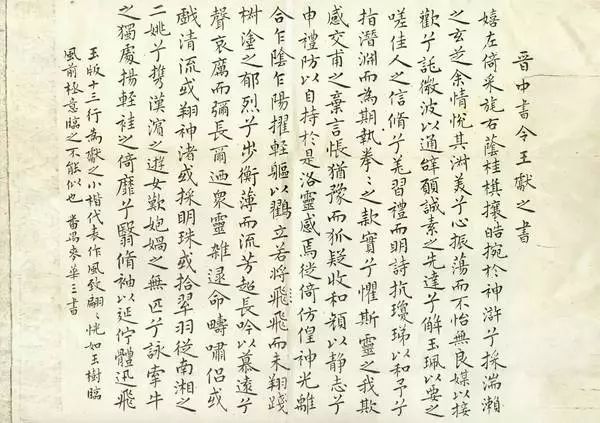 晉中書令王獻之書
嬉左倚采旄右蔭桂旗攘皓捥於神滸兮採湍瀨
之玄芝余情悅其淑美兮心振蕩而不怡無良媒以接
歡兮託微波以通辭願誠素之先達兮解玉珮以要之
嗟佳人之信脩兮羌習禮而明詩抗瓊珶以和予兮
指潛淵而為期執拳〻之款實兮懼斯靈之我欺
感交甫之棄言悵猶豫而狐疑收和顏以靜志兮
申禮防以自持於是洛靈感焉徙倚仿偟神光離
合乍陰乍陽擢輕軀以鶴立若將飛飛而未翔踐
椒塗之郁烈兮步衡薄而流芳超長吟以慕遠兮
聲哀厲而彌長爾迺衆靈雜遝命疇嘯侶或
戲清流或翔神渚或採明珠或拾翠羽從南湘之
二姚兮攜漢濱之遊女歎炮媧之無匹兮詠牽牛
之獨處揚輕袿之倚靡兮翳脩袖以延佇體迅飛
玉版十三行為獻之小楷代表作風致翩〻恍如玉樹臨
風前極意臨之不能似也 番禺麥華三書